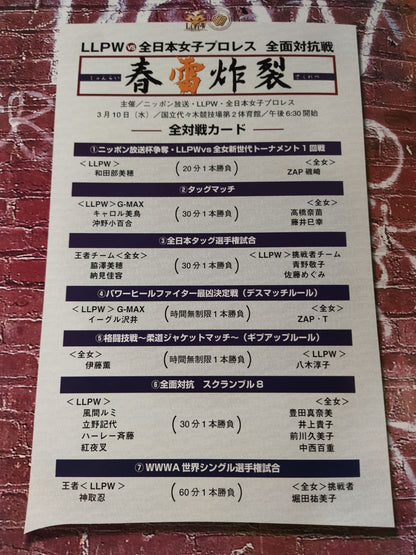 LLPW
LLPW VS 全日本女子プロレス 全面対抗戦
春雷炸裂
しゅんらい さくれつ
主催／ニッポン放送・LLPW・全日本女子プロレス
3月10日（水）／国立代々木競技場第2体育館／午後6:30開始
全対戦カード
①ニッポン放送杯争奪・LLPWvs全女新世代トーナメント1回戦
＜LLPW＞ ＜全女＞
和田部美穂 （20分1本勝負） ZAP 磯崎
②タッグマッチ
＜LLPW＞G-MAX ＜全女＞
キャロル美鳥 （30分1本勝負） 高橋奈苗
沖野小百合 藤井巳幸
③全日本タッグ選手権試合
王者チーム＜全女＞ ＜LLPW＞挑戦者チーム
脇澤美穂 （30分1本勝負） 青野敬子
納見佳容 佐藤めぐみ
④パワーヒールファイター最凶決定戦（デスマッチルール）
＜LLPW＞G-MAX ＜全女＞
イーグル沢井 （時間無制限1本勝負） ZAP・T
⑤格闘技戦～柔道ジャケットマッチ～（ギブアップルール）
＜全女＞ ＜LLPW＞
伊藤薫 （時間無制限1本勝負） 八木淳子
⑥全面対抗 スクランブル8
＜LLPW＞ ＜全女＞
風間ルミ 豊田真奈美
立野記代 （30分1本勝負） 井上貴子
ハーレー斉藤 前川久美子
紅夜叉 中西百重
⑦WWWA世界シングル選手権試合
王者＜LLPW＞ ＜全女＞挑戦者
神取忍 （60分1本勝負） 堀田祐美子